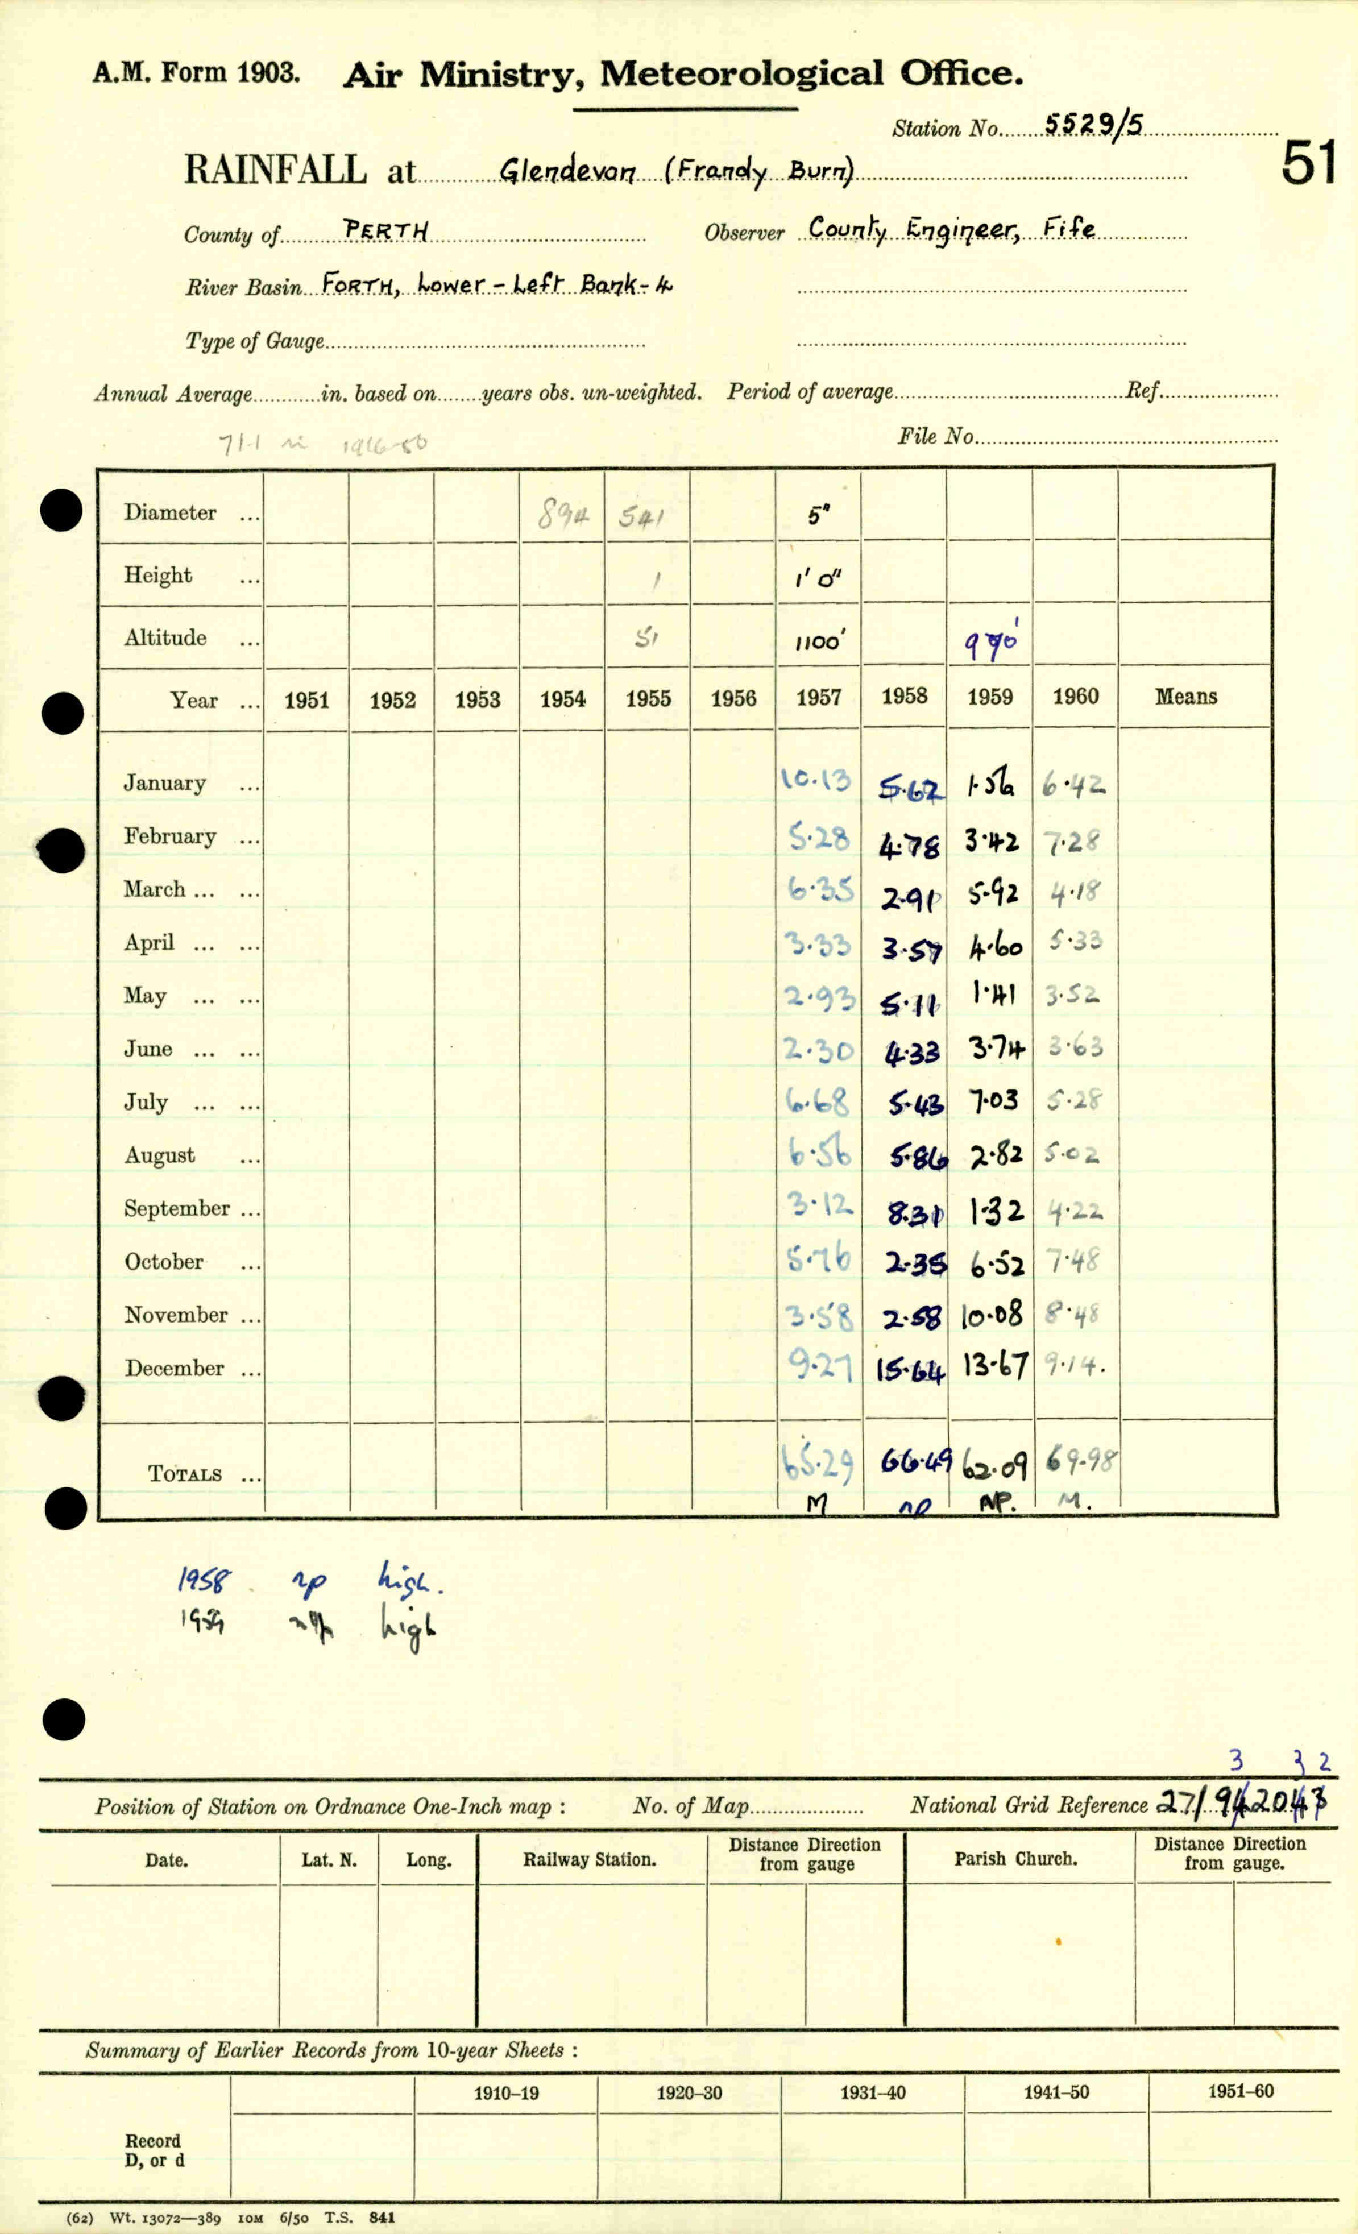 A.M. Form 1903. Air Ministry, Meteorological Office.
Station No. 5529/5
51
RAINFALL at Glendevon (Frandy Burn)
County of PERTH Observer County Engineer, Fife
River Basin FORTH, Lower - Left Bank - 4
Type of Gauge
Annual Average in. based on years obs. un-weighted. Period of average Ref.
File No.
71·1 1916-50
Diameter ... 894 541 5"
Height ... 1 1' 0"
Altitude ... 51 1100' 970'
Year ... 1951 1952 1953 1954 1955 1956 1957 1958 1959 1960 Means
January ... 10.13 5.62 1.56 6.42
February ... 5.28 4.78 3.42 7.28
March ... ... 6.35 2.91 5.92 4.18
April ... ... 3.33 3.57 4.60 5.33
May ... ... 2.93 5.11 1.41 3.52
June ... ... 2.30 4.33 3.74 3.63
July ... ... 6.68 5.43 7.03 5.28
August ... 6.56 5.86 2.82 5.02
September ... 3.12 8.31 1.32 4.22
October ... 5.76 2.35 6.52 7.48
November ... 3.58 2.58 10.08 8.48
December ... 9.27 15.64 13.67 9.14.
TOTALS ... 65.29 66.49 62.09 69.98
M np NP. M.
1958 np high.
1959 high
3 3 2
Position of Station on Ordnance One-Inch map : No. of Map National Grid Reference 27/942043
Date. Lat. N. Long. Railway Station. Distance Direction from gauge Parish Church. Distance Direction from gauge.
Summary of Earlier Records from 10-year Sheets :
1910–19 1920–30 1931–40 1941–50 1951–60
Record
D, or d
(62) Wt. 13072—389 10M 6/50 T.S. 841